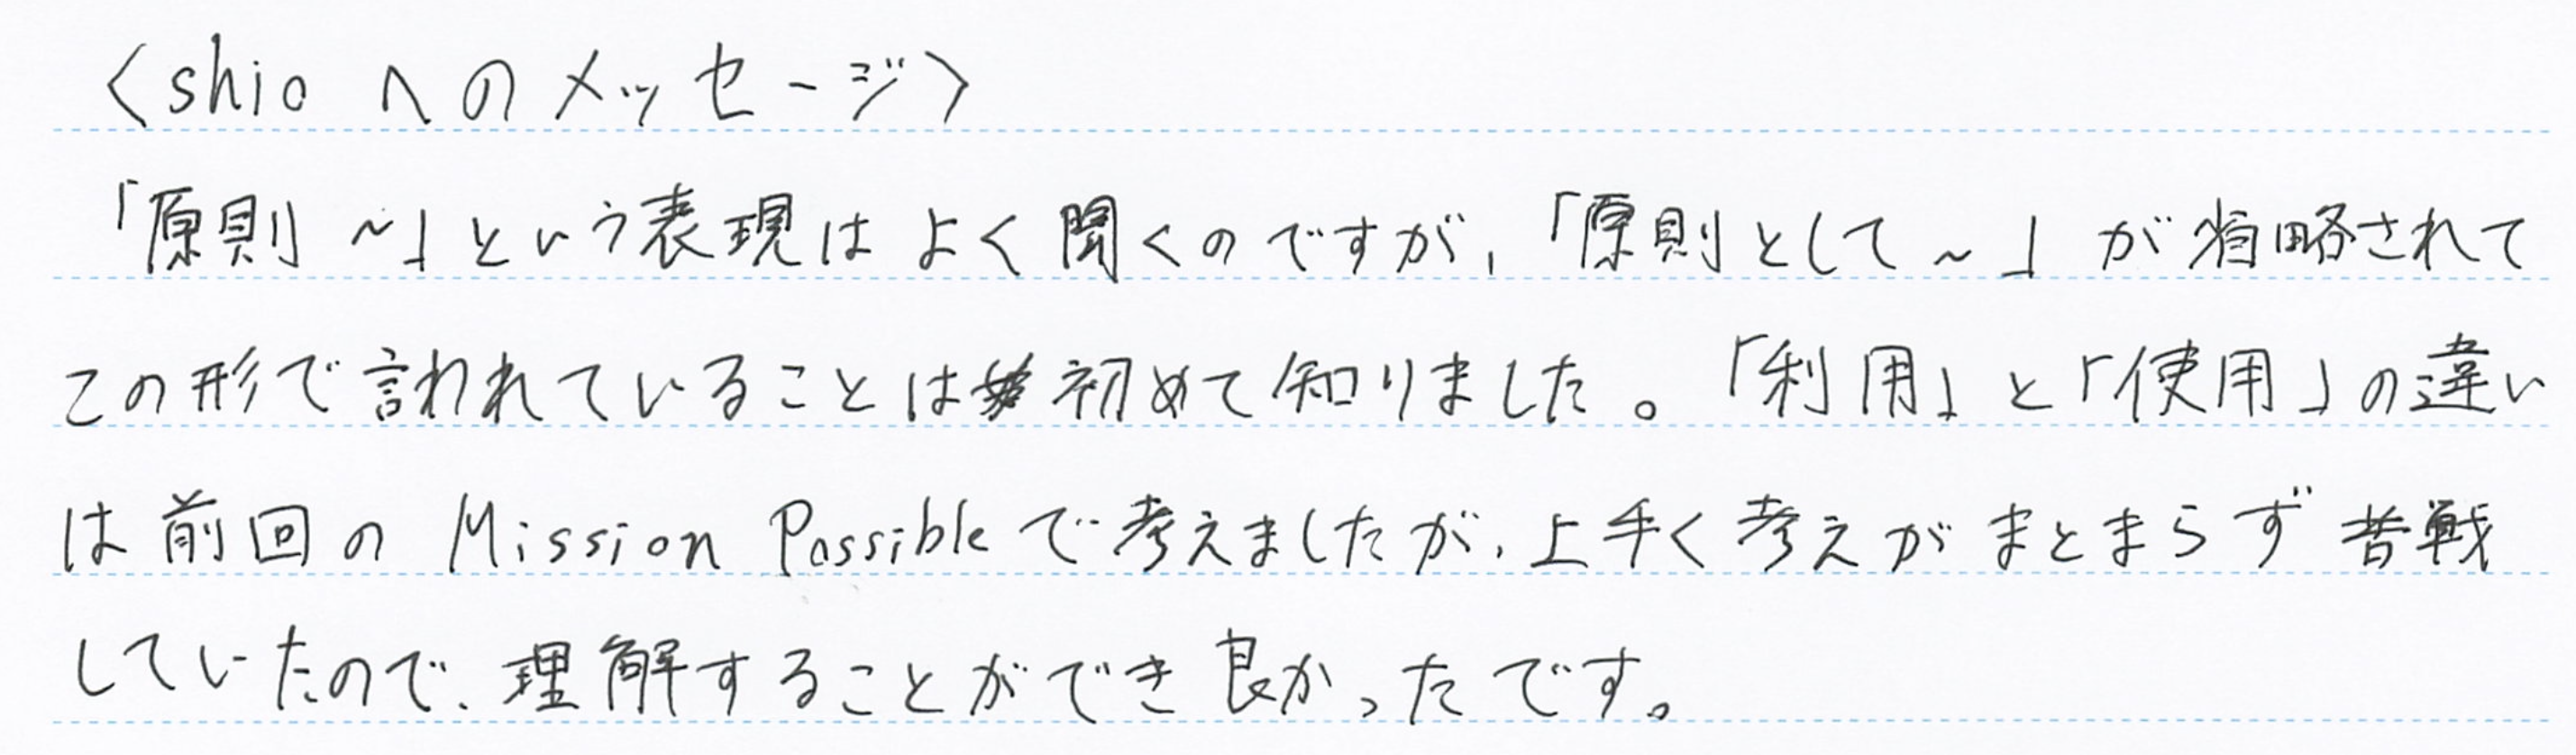 〈shioへのメッセージ〉
「原則～」という表現はよく聞くのですが,「原則として～」が省略されて
この形で言われていることは初めて知りました。「利用」と「使用」の違い
は前回のMission Possibleで考えましたが、上手く考えがまとまらず苦戦
していたので、理解することができ良かったです。